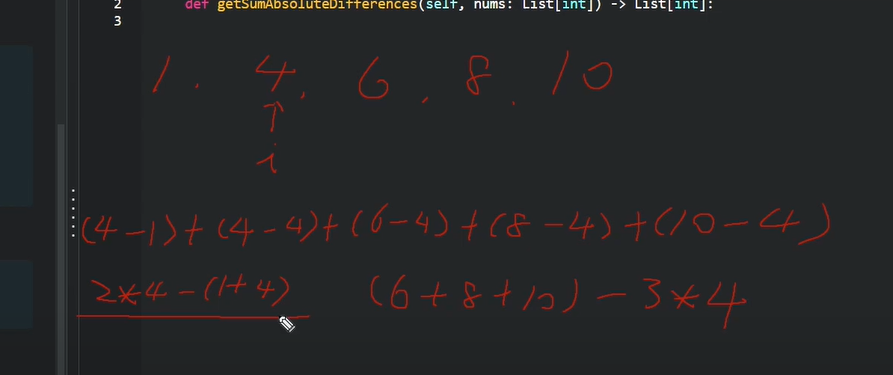 2 def getSumAbsoluteDifferences(self, nums: List[int]) -> List[int]:
3
1 . 4 . 6 . 8 . 10
↑
i
(4-1)+(4-4)+(6-4)+(8-4)+(10-4)
2*4-(1+4) (6+8+10)-3*4